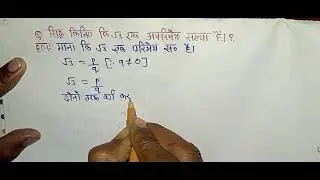 Q सिद्ध किजिए कि √3 एक अपरिमेय संख्या है।?
हल: माना कि √3 एक परिमेय संख्या है।
√3 = p/q [∵ q≠0]
√3 = p/q
दोनो तरफ वर्ग कर